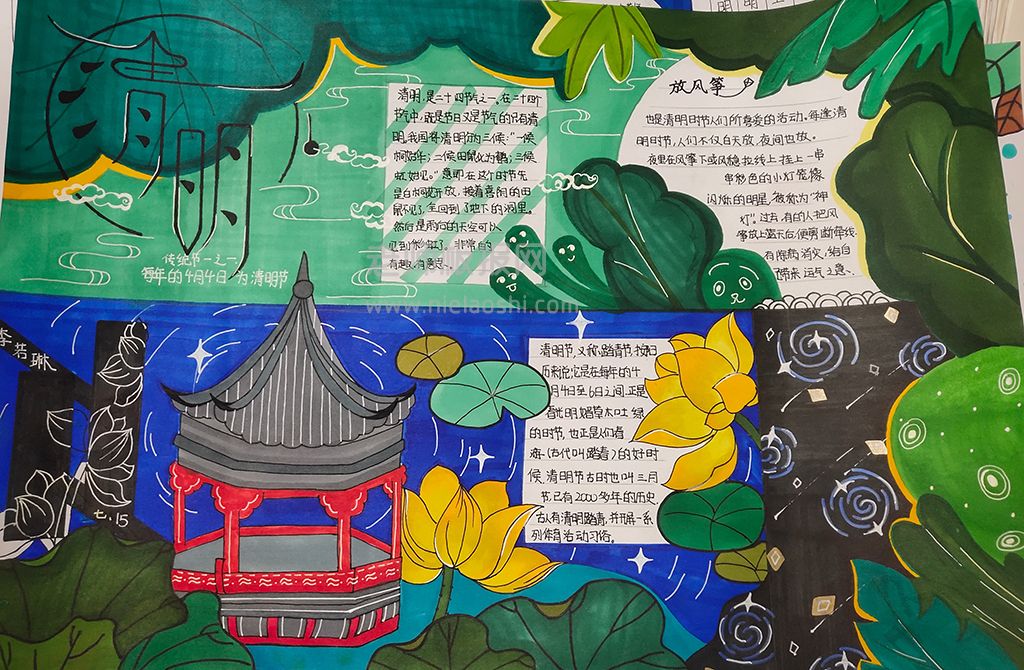 清明
传统节一之一
每年的4月4日 为清明节
清明,是二十四节气之一,在二十四个
节气中,既是节日又是节气的只有清
明。我国将清明分为三候:"一候
桐始华;二候田鼠化为鹌;三候
虹始见。"意即在这个时节先
是白桐花开放,接着喜阴的田
鼠不见了,全回到了地下的洞里。
然后是雨后的天空可以
见到彩虹了,非常的
有趣,有意。
放风筝
也是清明日节人们所喜爱的活动。每逢清
明日节,人们不仅白天放,夜间也放。
夜里在风筝下或风稳拉线上挂上一串
串彩色的小灯笼像
闪烁的明星,被称为"神
灯"。过去,有的人把风
筝放上蓝天后,便剪断牵线
有除病消灾,给自
带来运气之意。
www.nielaoshi.com
李若琳
七.15
清明节,又称踏青节,按阳
历来说,它是在每年的4
月4日至6日之间,正是
春光明媚草木吐绿
的时节,也正是人们春
游(古代叫踏青)的好时
候,清明节古时也叫三月
节,已有2000多年的历史
古人有清明踏青,并开展一系
列体育活动习俗。